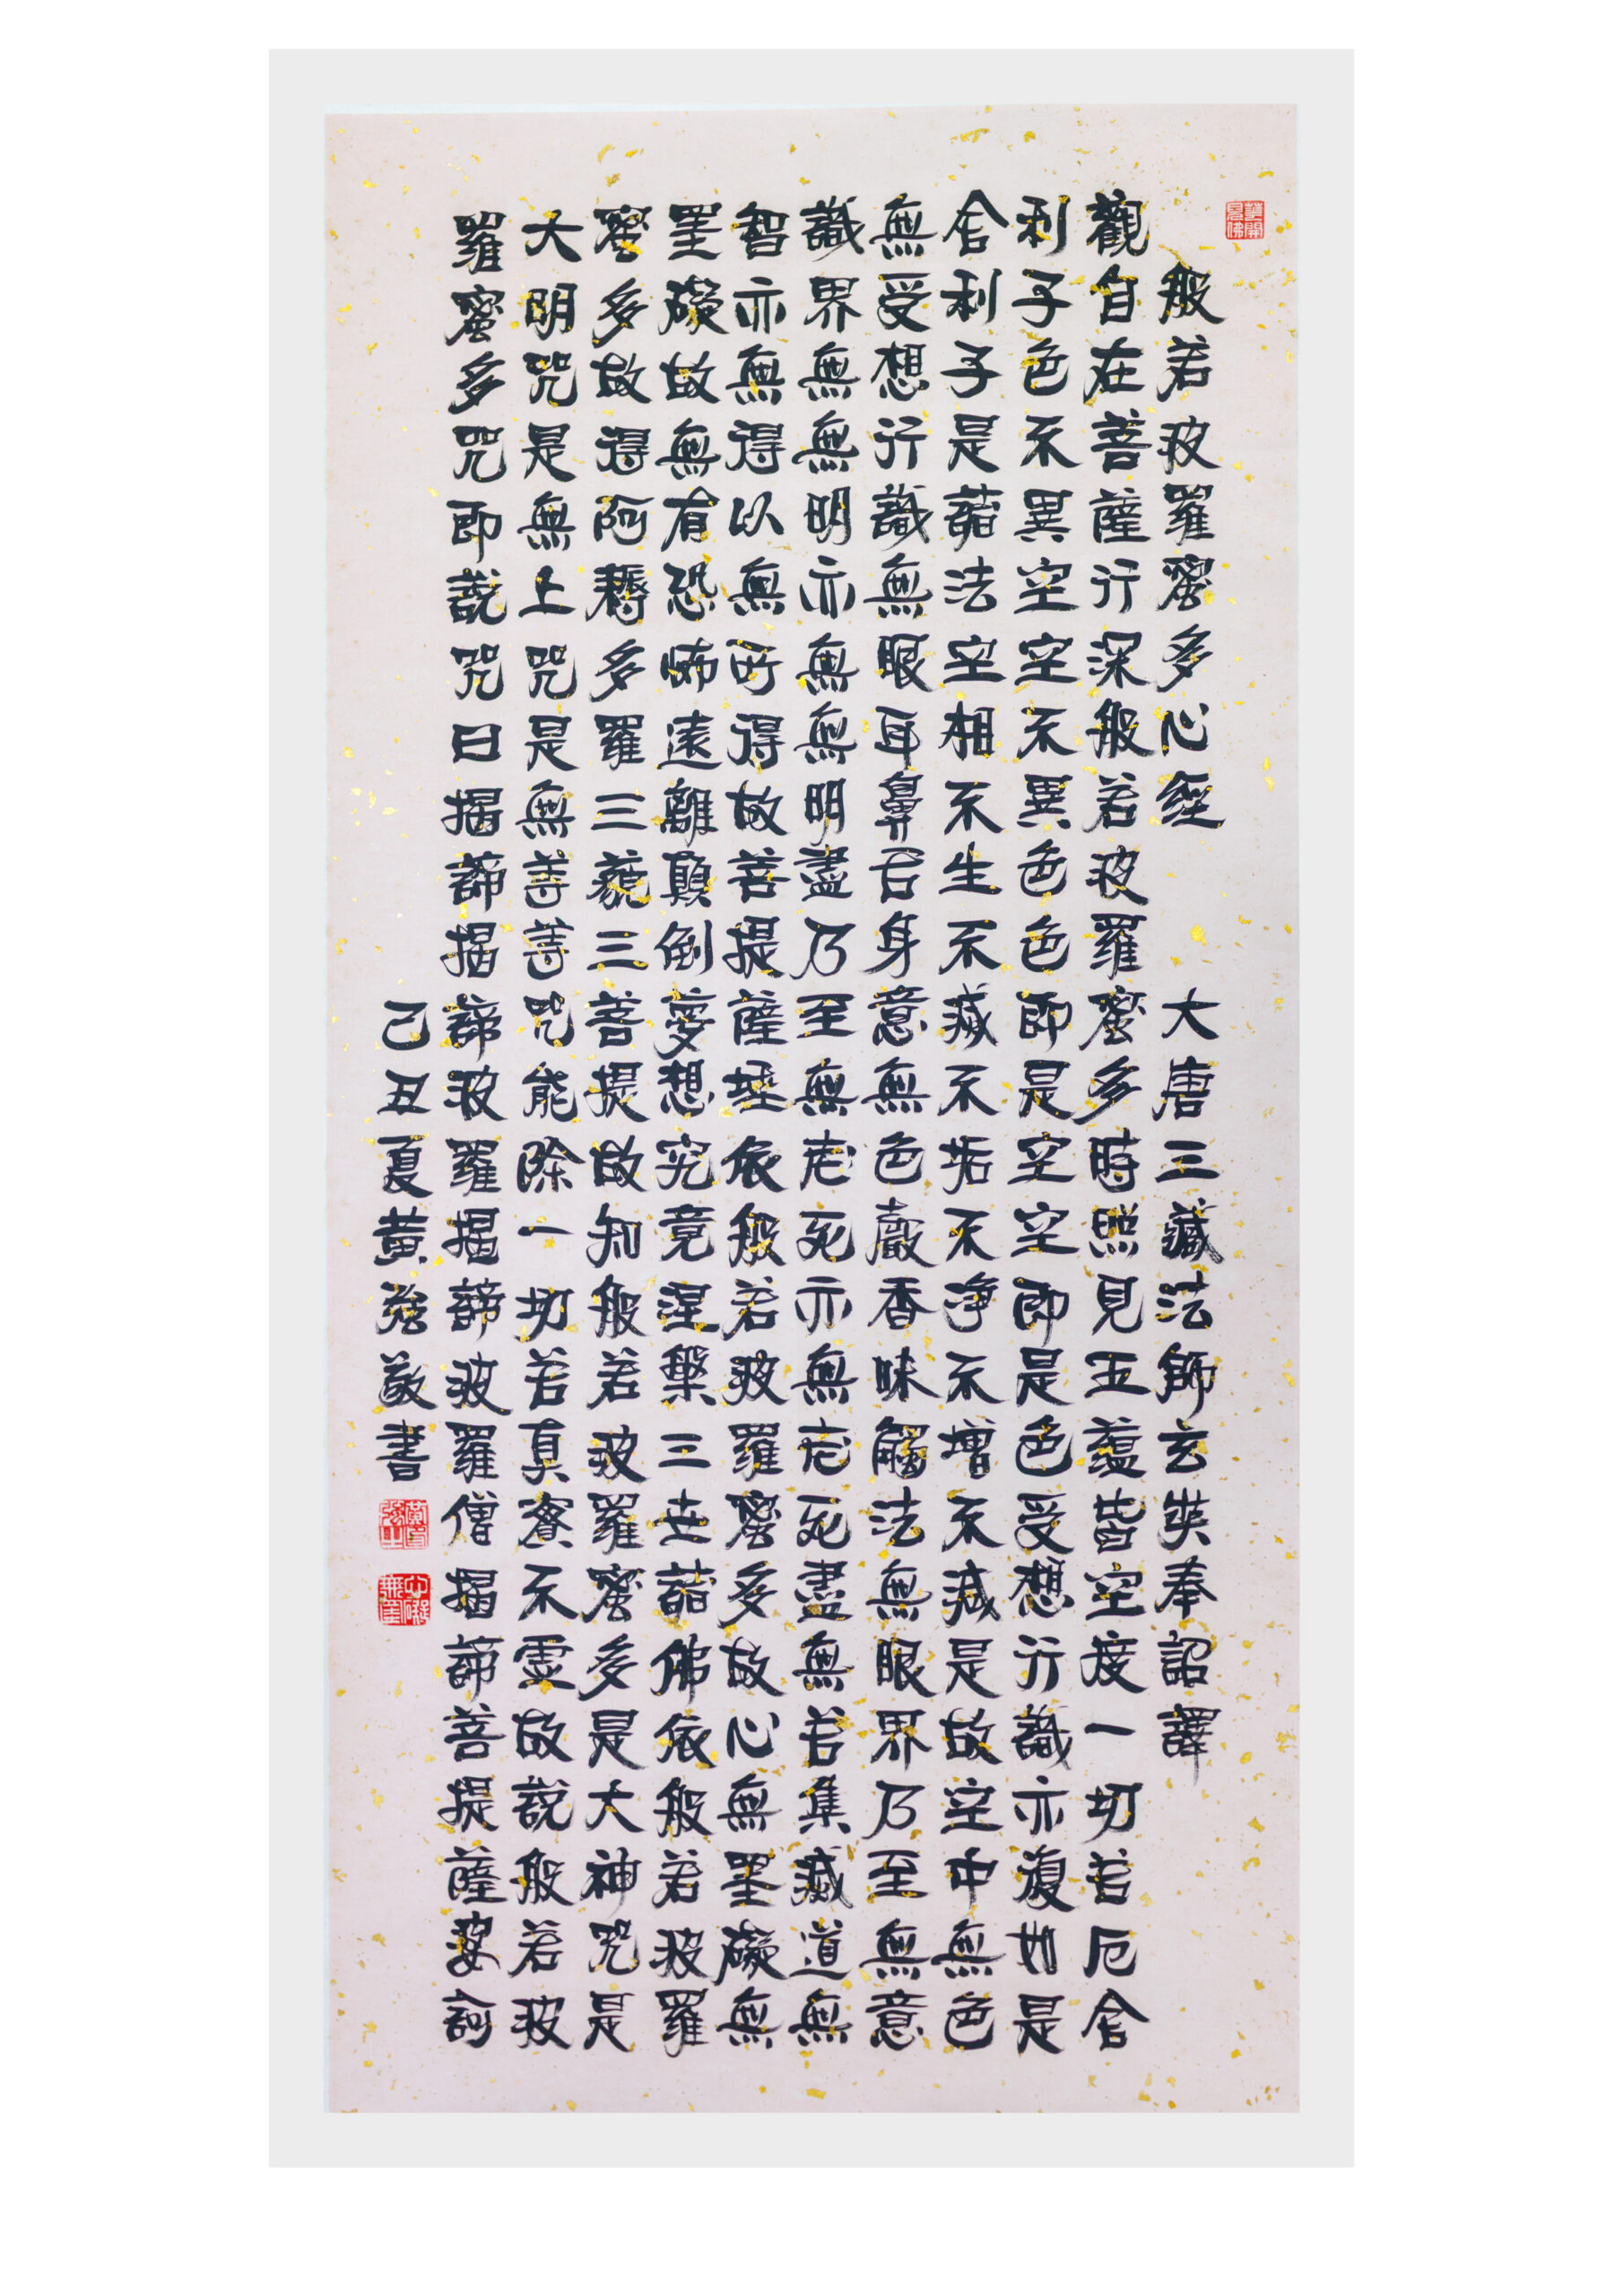 般若波羅蜜多心經 大唐三藏法師玄奘奉詔譯
觀自在菩薩行深般若波羅蜜多時照見五蘊皆空度一切苦厄舍
利子色不異空空不異色色即是空空即是色受想行識亦復如是
舍利子是諸法空相不生不滅不垢不淨不增不減是故空中無色
無受想行識無眼耳鼻舌身意無色聲香味觸法無眼界乃至無意
識界無無明亦無無明盡乃至無老死亦無老死盡無苦集滅道無
智亦無得以無所得故菩提薩埵依般若波羅蜜多故心無罣礙無
罣礙故無有恐怖遠離顛倒夢想究竟涅槃三世諸佛依般若波羅
蜜多故得阿耨多羅三藐三菩提故知般若波羅蜜多是大神咒是
大明咒是無上咒是無等等咒能除一切苦真實不虛故說般若波
羅蜜多咒即說咒曰揭諦揭諦波羅揭諦波羅僧揭諦菩提薩婆訶
己丑夏黃強敬書
心無罣礙